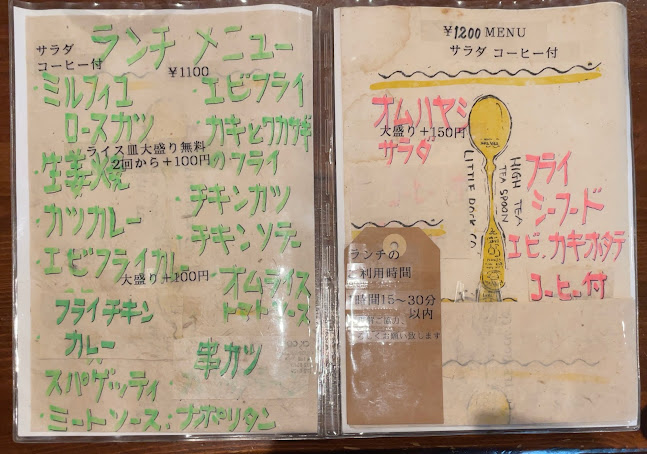 ランチ メニュー
サラダ
コーヒー付
¥1100
ミルフィユ
ロースカツ
ライス皿大盛り無料
2回から+100円
・生姜焼
・カツカレー
・エビフライカレー
大盛り+100円
・フライチキン
カレー
・スパゲッティ
・ミートソース:ナポリタン
・エビフライ
・カキとワカサギ
のフライ
・チキンカツ
・チキンソテー
・オムライス
トマトソース
串カツ
¥1200 MENU
サラダ コーヒー付
オムハヤシ
大盛り+150円
サラダ
LITTLE DOCK CO
HIGH TEA
TEA SPOON
フライ
シーフード
エビ.カキホタテ
コーヒー付
ランチの
ご利用時間
時間15~30分
以内
お願い致します